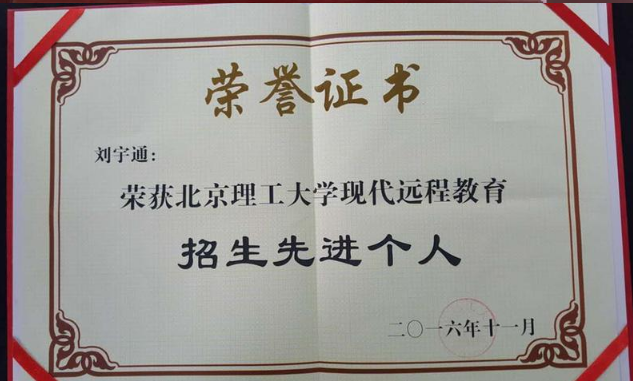 荣誉证书
刘宇通：
荣获北京理工大学现代远程教育
招生先进个人
二〇一六年十一月